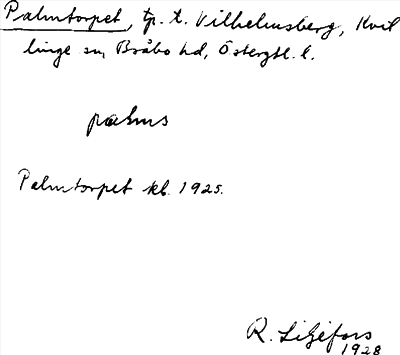 Palmtorpet, tp. t. Vilhelmsberg, Kvil
linge sn, Bråbo hd, Östergtl. l.
palms
Palmtorpet kb. 1925.
R. Liljefors
1928